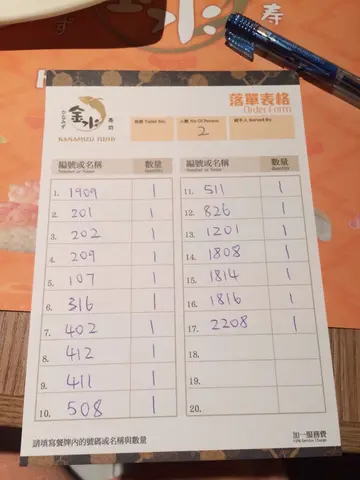 水
寿
金水
かなみず
寿司
KANAMIZU SUSHI
落單表格
Order Form
枱號 Table No.
人數 No Of Person
2
經手人 Served By
編號或名稱
Number or Name
數量
Quantity
1. 1909 1
2. 201 1
3. 202 1
4. 209 1
5. 107 1
6. 316 1
7. 402 1
8. 412 1
9. 411 1
10. 508 1
編號或名稱
Number or Name
數量
Quantity
11. 511 1
12. 826 1
13. 1201 1
14. 1808 1
15. 1814 1
16. 1816 1
17. 2208 1
18.
19.
20.
請填寫餐牌內的號碼或名稱與數量
加一服務費
+10% Service Charge